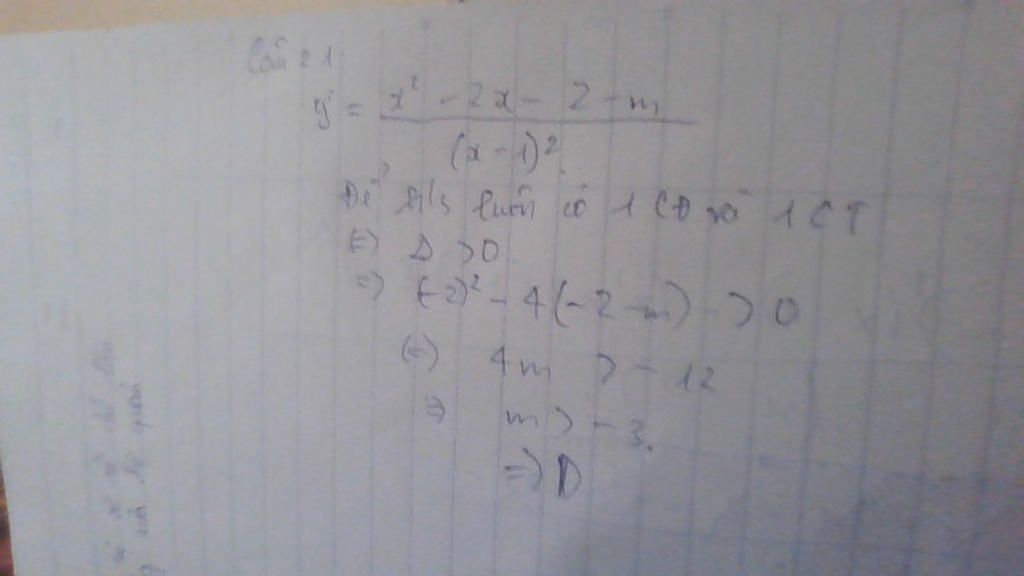 Câu 21:
y' = \frac{x² - 2x - 2 - m}{(x - 1)²}
Để h/s luôn có 1 CĐ và 1 CT
(=) Δ > 0
=) (-2)² - 4(-2 - m) > 0
(=) 4m > -12
=) m > -3.
=) D